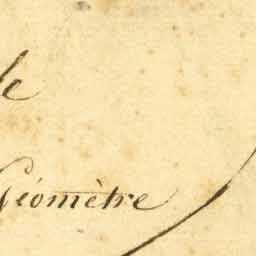 le
Géomètre